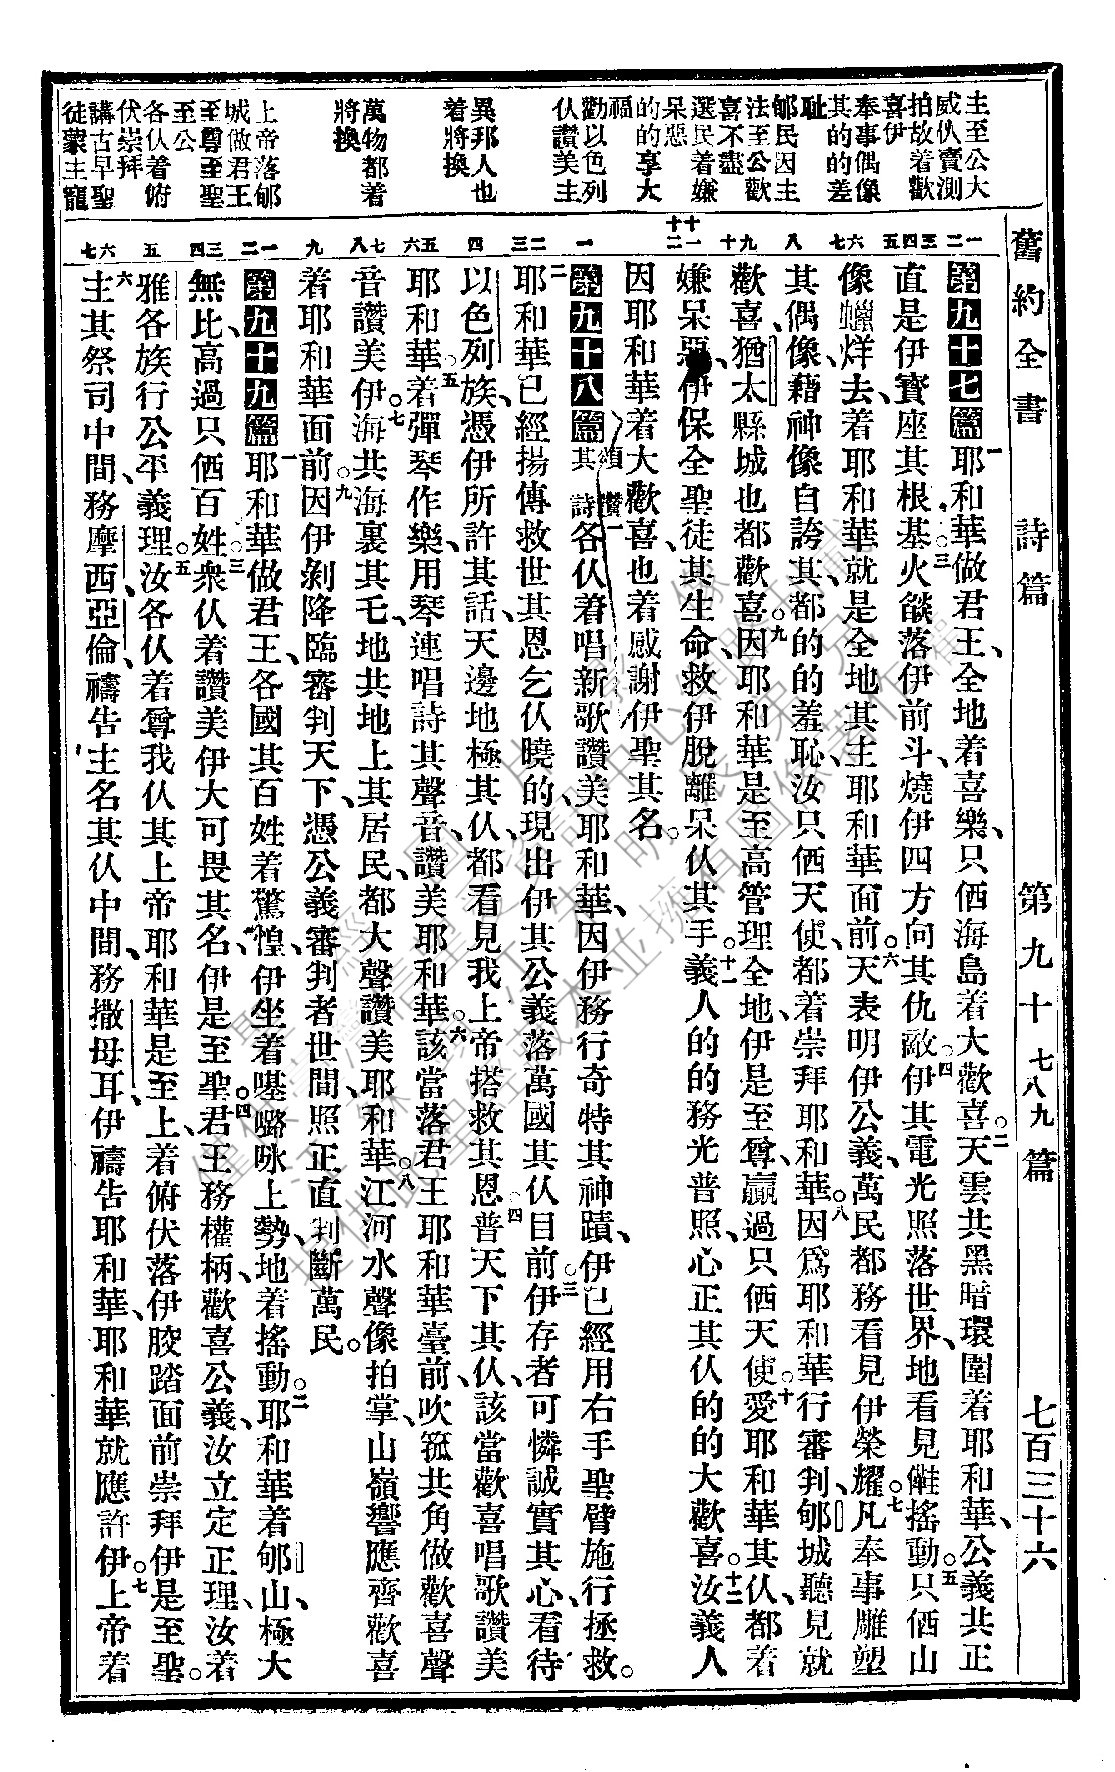 舊約全書　詩篇　第九十七八九篇　七百三十六
主至公大
威仈賣測
拍故着歡
喜伊
奉事偶像
其的的差
耻
郇民因主
法至公歡
喜不盡
選民着嫌
呆惡
的的享大
福
勸以色列
仈讚美主
異邦人也
着將換
萬物都着
將換
上帝落郇
城做君王
至尊至聖
至公
各仈着俯
伏崇拜
講古早聖
徒蒙主寵
第九十七篇一耶和華做君王、全地着喜樂、只俩海島着大歡喜。二天雲共黑暗環圍着耶和華、公義共正
直是伊寶座其根基。三火燄落伊前斗、燒伊四方向其仇敵。四伊其電光照落世界、地看見儺搖動。五只俩山
像蠟烊去、着耶和華就是全地其主耶和華面前。六天表明伊公義、萬民都務看見伊榮耀。七凡奉事雕塑
其偶像、藉神像自誇其、都的的羞恥、汝只俩天使、都着崇拜耶和華。八因爲耶和華行審判、郇城聽見就
歡喜、猶太縣城也都歡喜。九因耶和華是至高管理全地、伊是至尊、贏過只俩天使。十愛耶和華其仈、都着
嫌呆惡、伊保全聖徒其生命、救伊脫離呆仈其手。十一義人的的務光普照、心正其仈的的大歡喜。十二汝義人
因耶和華着大歡喜、也着感謝伊聖其名。
第九十八篇 頌讚其詩 一各仈着唱新歌讚美耶和華、因伊務行奇特其神蹟、伊已經用右手聖臂施行拯救。
二耶和華已經揚傳救世其恩乞仈曉的、現出伊其公義落萬國其仈目前。三伊存者可憐誠實其心、看待
以色列族、憑伊所許其話、天邊地極其仈、都看見我上帝搭救其恩。四普天下其仈、該當歡喜唱歌讚美
耶和華。五着彈琴作樂、用琴連唱詩其聲音、讚美耶和華。六該當落君王耶和華臺前、吹箛共角做歡喜聲
音讚美伊。七海共海裏其乇、地共地上其居民、都大聲讚美耶和華。八江河水聲像拍掌、山嶺響應齊歡喜
着耶和華面前。九因伊剝降臨審判天下、憑公義審判者世間、照正直判斷萬民。
第九十九篇一耶和華做君王、各國其百姓着驚惶、伊坐着𠼻嚧咏上勢、地着搖動。二耶和華着郇山、極大
無比、高過只俩百姓。三衆仈着讚美伊大可畏其名、伊是至聖。四君王務權柄、歡喜公義、汝立定正理、汝着
雅各族行公平義理。五汝各仈着尊我仈其上帝耶和華是至上、着俯伏落伊骹踏面前崇拜、伊是至聖。
六主其祭司中間、務摩西亞倫、禱告主名其仈中間、務撒母耳、伊禱告耶和華、耶和華就應許伊。七上帝着